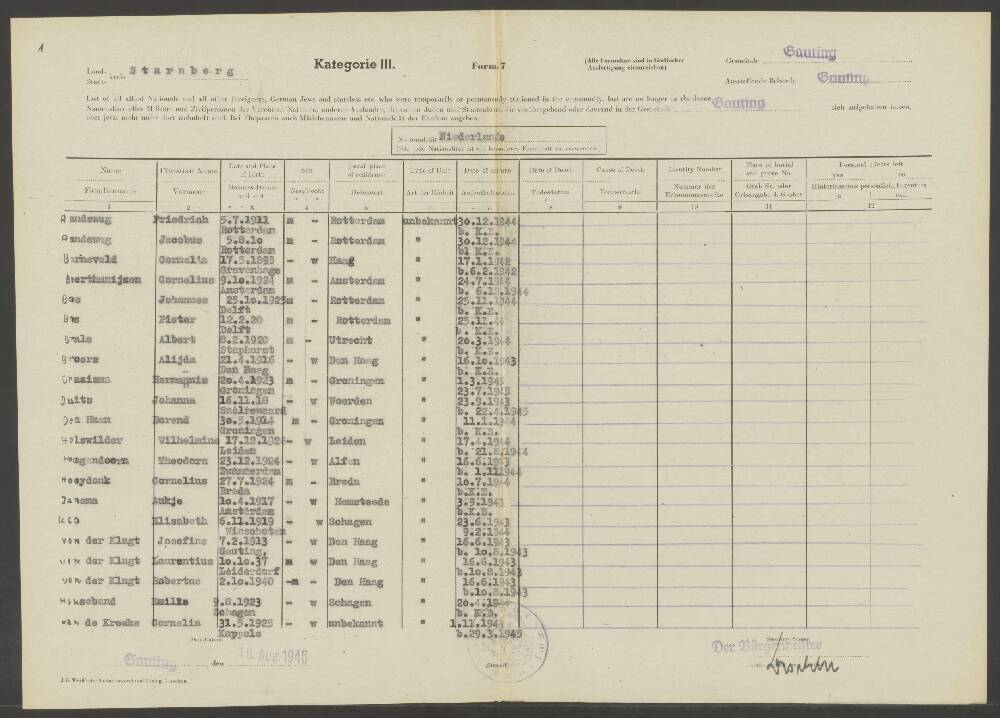 1
Land- kreis Starnberg
Stadt-
Kategorie III.
Form. 7
(Alle Formulare sind in 5facher Ausfertigung einzureichen)
Gemeinde Gauting
Ausstellende Behörde Gauting
List of all allied Nationals and all other foreigners, German Jews and stateless etc. who were temporarily or permanently stationed in the community, but are no longer in residence. Gauting
sich aufgehalten haben,
aber jetzt nicht mehr dort wohnhaft sind. Bei Ehepaaren auch Mädchenname und Nationalität der Ehefrau angeben.
Nationalität Niederlande
Name Christian Name Date and Place of birth Sex Usual place of residence Type of Unit Date of return Date of Death Cause of Death Identity Number Place of burial and grave No. Personal effects left yes no
Familienname Vorname Geburts-Datum und -ort Geschlecht Heimatort Art der Einheit Todesdatum Todesursache Nummer der Erkennungsmarke Grab-Nr. oder Ortsangabe d. Grabes Hinterlassenes persönlich. Eigentum
1 2 3 4 5 6 7 8 9 10 11 12
Friedrich 5.7.1911 m - Rotterdam unbekannt 30.12.1944
Rotterdam b. K.E.
Jacobus 5.8.10 m - Rotterdam " 30.12.1944
Rotterdam bl K.E.
Barneveld Cornelia 17.5.1893 - w Haag " 17.1.1942
Gravenhage b.6.2.1942
Cornelius 9.10.1924 m - Amsterdam " 24.7.1944
Amsterdam b. 6.12.1944
Bos Johannes 25.10.1925 m - Rotterdam " 25.11.1944
Delft b. K.E.
Bos Pieter 12.2.20 m - Rotterdam " 25.11.44
Delft b. K.E.
Albert 8.2.1920 m - Utrecht " 20.3.1944
Staphorst b. K.E.
Broers Alijda 21.4.1916 - w Den Haag " 16.10.1943
Den Haag b. K.E.
Hermannis 20.4.1923 m - Groningen " 1.3.1945
Groningen 23.7.1945
Duits Johanna 16.11.18 - w Woerden " 23.9.1943
Snelrewaard b. 22.4.1945
Den Haan Barend 30.5.1914 m - Groningen " 11.1.1944
Groningen b. K.E.
Hotswilder Wilhelmine 17.12.192 - w Leiden " 17.4.1944
Leiden b. 21.8.1944
Hoogendoorn Theodora 23.12.1924 - w Alfen " 16.6.1943
Zwammerdam b. 1.11.1944
Hooydonk Cornelius 27.7.1924 m - Breda " 10.7.1944
Breda b.K.E.
Jansma Aukje 10.4.1917 - w Hemsteede " 3.9.1943
Amsterdam b.K.E.
Elisabeth 6.11.1919 - w Schagen " 23.6.1943
Winschoten 9.2.1944
von der Klugt Josefine 7.2.1913 - w Den Haag " 16.6.1943
Gauting, b. 10.8.1943
von der Klugt Laurentius 10.10.37 m w Den Haag " 16.6.1943
Leiderdorf b.10.8.1943
von der Klugt Robertus 2.10.1940 -m - Den Haag " 16.6.1943
b.10.8.1943
Emilie 9.8.1923 - w Schagen " 20.4.1944
Schagen b. K.E.
van de Kreeke Cornelia 31.5.1925 - w unbekannt " 1.11.1943
Kappele b.29.3.1945
Gauting den 16. Aug. 1946
Der Bürgermeister